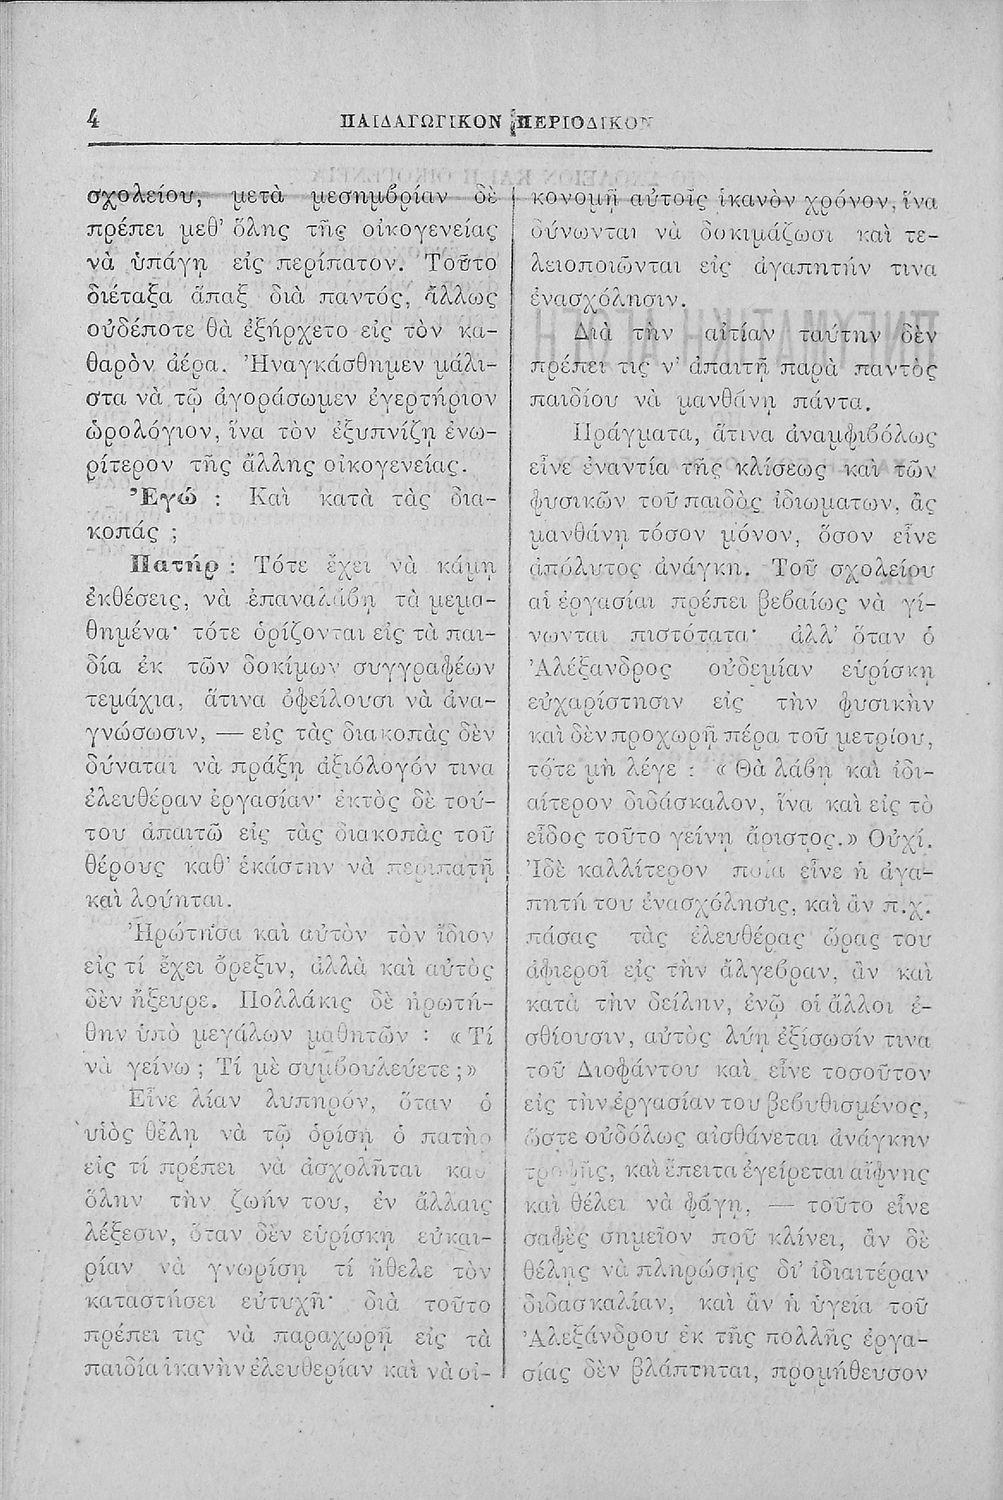 4
ΠΑΙΔΑΓΩΓΙΚΟΝ ΠΕΡΙΟΔΙΚΟΝ
σχολείου, μετὰ μεσημβρίαν δὲ
πρέπει μεθ' ὅλης τῆς οἰκογενείας
νὰ ὑπάγῃ εἰς περίπατον. Τοῦτο
διέταξα ἅπαξ διὰ παντός, ἄλλως
οὐδέποτε θὰ ἐξήρχετο εἰς τὸν κα-
θαρὸν ἀέρα. Ἠναγκάσθημεν μάλι-
στα νὰ τῷ ἀγοράσωμεν ἐγερτήριον
ὡρολόγιον, ἵνα τὸν ἐξυπνίζῃ ἐνω-
ρίτερον τῆς ἄλλης οἰκογενείας.
Ἐγώ : Καὶ κατὰ τὰς δια-
κοπάς ;
Πατήρ : Τότε ἔχει νὰ κάμῃ
ἐκθέσεις, νὰ ἐπαναλάβῃ τὰ μεμα-
θημένα· τότε ὁρίζονται εἰς τὰ παι-
δία ἐκ τῶν δοκίμων συγγραφέων
τεμάχια, ἅτινα ὀφείλουσι νὰ ἀνα-
γνώσωσιν, — εἰς τὰς διακοπὰς δὲν
δύναται νὰ πράξῃ ἀξιόλογόν τινα
ἐλευθέραν ἐργασίαν· ἐκτὸς δὲ τού-
του ἀπαιτῶ εἰς τὰς διακοπὰς τοῦ
θέρους καθ' ἑκάστην νὰ περιπατῇ
καὶ λούηται.
Ἠρώτησα καὶ αὐτὸν τὸν ἴδιον
εἰς τί ἔχει ὄρεξιν, ἀλλὰ καὶ αὐτὸς
δὲν ἤξευρε. Πολλάκις δὲ ἠρωτή-
θην ὑπὸ μεγάλων μαθητῶν : « Τί
νὰ γείνω ; Τί μὲ συμβουλεύετε ;»
Εἶνε λίαν λυπηρόν, ὅταν ὁ
υἱὸς θέλῃ νὰ τῷ ὁρίσῃ ὁ πατὴρ
εἰς τί πρέπει νὰ ἀσχολῆται καθ'
ὅλην τὴν ζωήν του, ἐν ἄλλαις
λέξεσιν, ὅταν δὲν εὑρίσκῃ εὐκαι-
ρίαν νὰ γνωρίσῃ τί ἤθελε τὸν
καταστήσει εὐτυχῆ· διὰ τοῦτο
πρέπει τις νὰ παραχωρῇ εἰς τὰ
παιδία ἱκανὴν ἐλευθερίαν καὶ νὰ οἰ-
κονομῇ αὐτοῖς ἱκανὸν χρόνον, ἵνα
δύνωνται νὰ δοκιμάζωσι καὶ τε-
λειοποιῶνται εἰς ἀγαπητήν τινα
ἐνασχόλησιν.
Διὰ τὴν αἰτίαν ταύτην δὲν
πρέπει τις ν' ἀπαιτῇ παρὰ παντὸς
παιδίου νὰ μανθάνῃ πάντα.
Πράγματα, ἅτινα ἀναμφιβόλως
εἶνε ἐναντία τῆς κλίσεως καὶ τῶν
φυσικῶν τοῦ παιδὸς ἰδιωμάτων, ἃς
μανθάνῃ τόσον μόνον, ὅσον εἶνε
ἀπόλυτος ἀνάγκη. Τοῦ σχολείου
αἱ ἐργασίαι πρέπει βεβαίως νὰ γί-
νωνται πιστότατα· ἀλλ' ὅταν ὁ
Ἀλέξανδρος οὐδεμίαν εὑρίσκῃ
εὐχαρίστησιν εἰς τὴν φυσικὴν
καὶ δὲν προχωρῇ πέρα τοῦ μετρίου,
τότε μὴ λέγε : « Θὰ λάβῃ καὶ ἰδι-
αίτερον διδάσκαλον, ἵνα καὶ εἰς τὸ
εἶδος τοῦτο γείνῃ ἄριστος.» Οὐχί.
Ἰδὲ καλλίτερον ποία εἶνε ἡ ἀγα-
πητή του ἐνασχόλησις, καὶ ἂν π.χ.
πάσας τὰς ἐλευθέρας ὥρας του
ἀφιεροῖ εἰς τὴν ἄλγεβραν, ἂν καὶ
κατὰ τὴν δείλην, ἐνῷ οἱ ἄλλοι ἐ-
σθίουσιν, αὐτὸς λύῃ ἐξίσωσίν τινα
τοῦ Διοφάντου καὶ εἶνε τοσοῦτον
εἰς τὴν ἐργασίαν του βεβυθισμένος,
ὥστε οὐδόλως αἰσθάνεται ἀνάγκην
τροφῆς, καὶ ἔπειτα ἐγείρεται αἴφνης
καὶ θέλει νὰ φάγῃ, — τοῦτο εἶνε
σαφὲς σημεῖον ποῦ κλίνει, ἂν δὲ
θέλῃς νὰ πληρώσῃς δι' ἰδιαιτέραν
διδασκαλίαν, καὶ ἂν ἡ ὑγεία τοῦ
Ἀλεξάνδρου ἐκ τῆς πολλῆς ἐργα-
σίας δὲν βλάπτηται, προμήθευσον